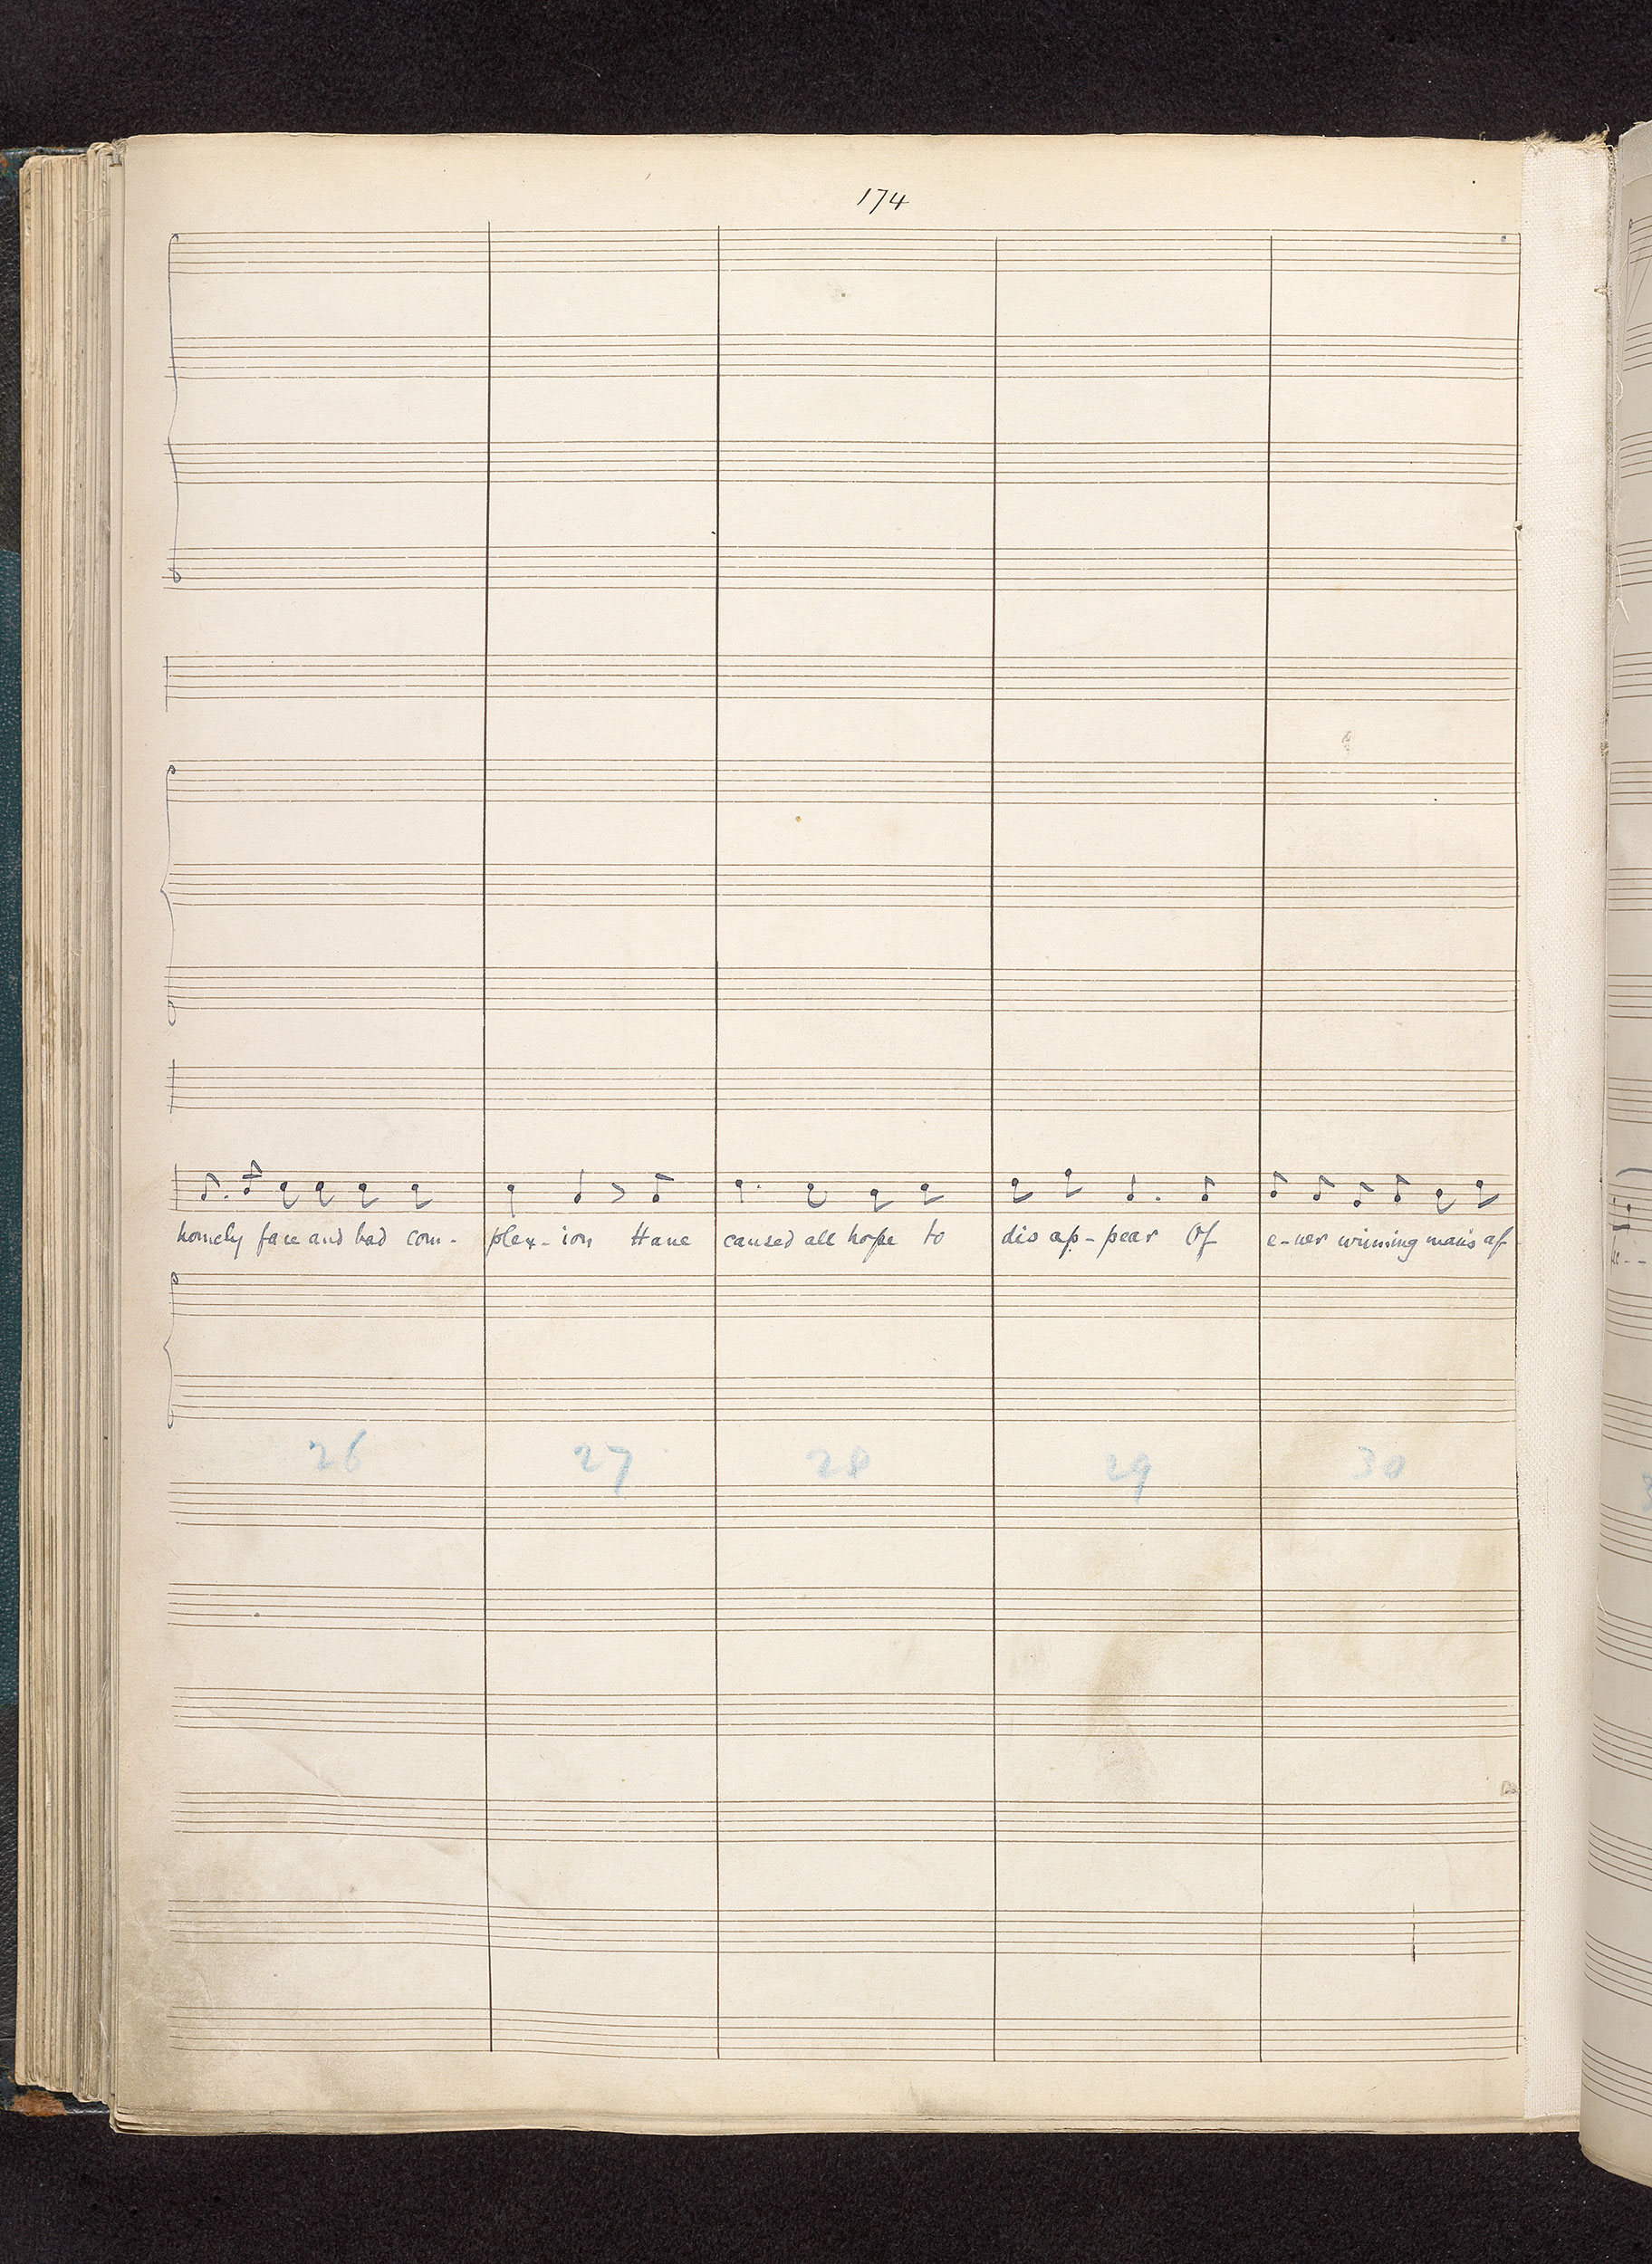 174
homely face and bad com- plex-ion Have caused all hope to dis ap-pear Of e-ver winning man's af-
26 27 28 29 30